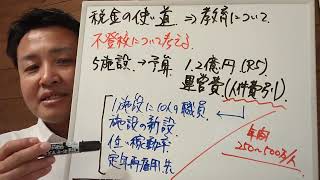 税金の使い道 ⇒ 教育について
不登校について考える
5施設 → 予算 1.2億円(R5)
運営費(人件費引)
1施設に10人の職員
施設の新設
低い稼動率
定年再雇用先
年間
250〜500万/人